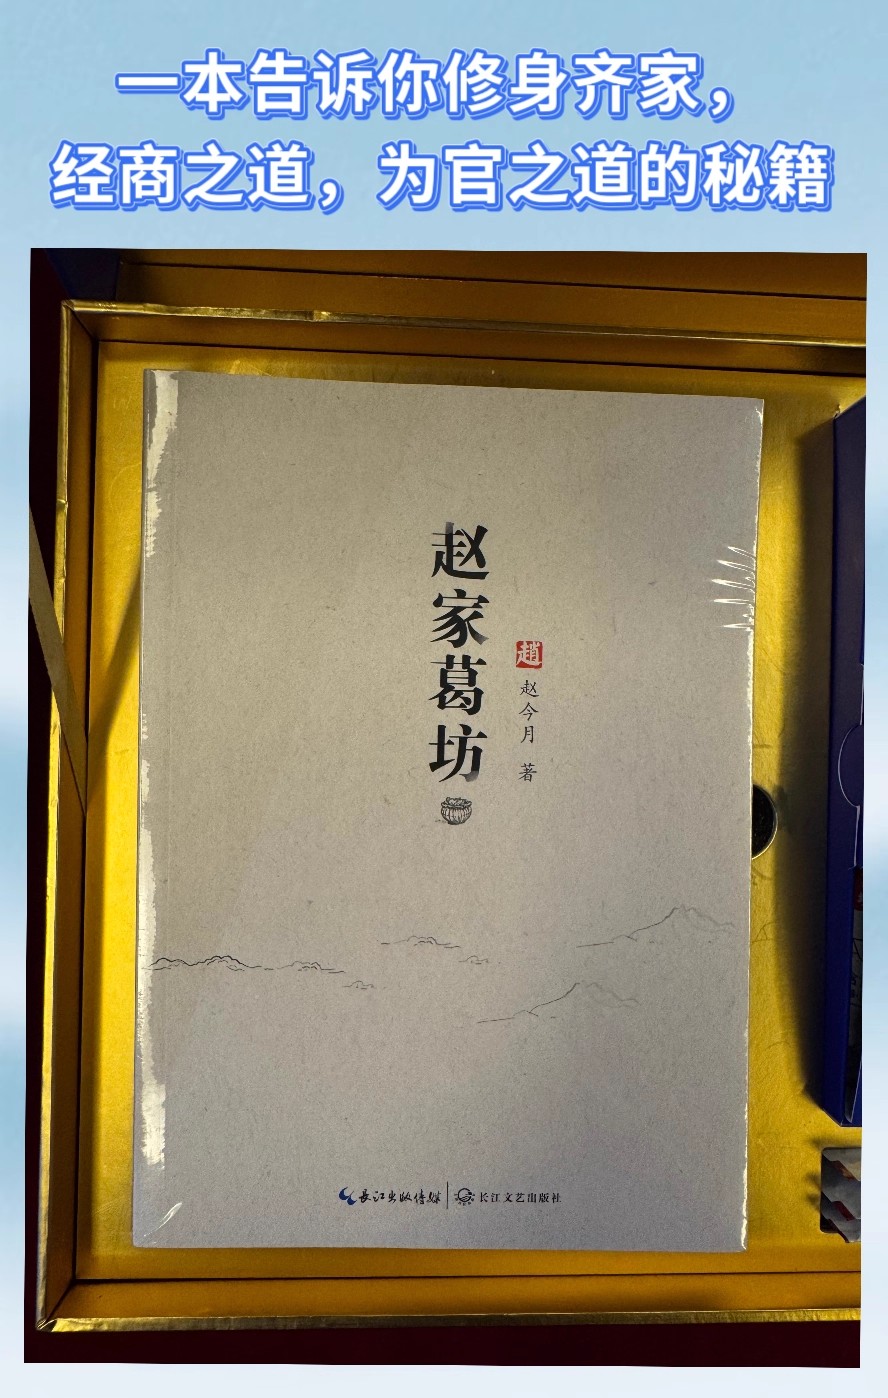 一本告诉你修身齐家，
经商之道，为官之道的秘籍
赵家葛坊
趙
赵今月 著
长江出版传媒
长江文艺出版社